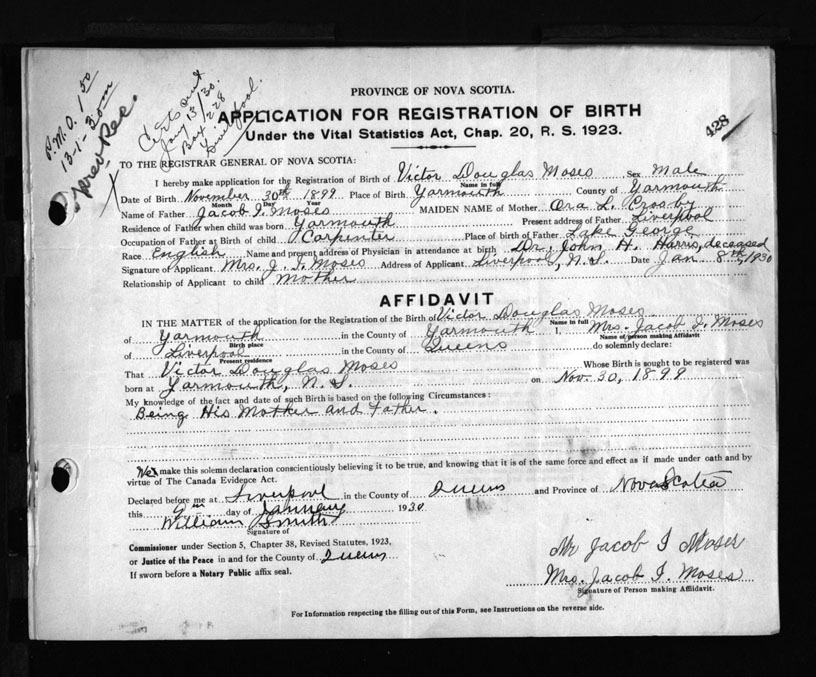 P.M.O. 1.50
13-1-30
Certs sent
Jany 13/30.
Box 228
Liverpool.
428
PROVINCE OF NOVA SCOTIA.
APPLICATION FOR REGISTRATION OF BIRTH
Under the Vital Statistics Act, Chap. 20, R. S. 1923.
TO THE REGISTRAR GENERAL OF NOVA SCOTIA:
I hereby make application for the Registration of Birth of Victor Douglas Moses Sex Male
Name in full
Date of Birth November 30th 1899 Place of Birth Yarmouth County of Yarmouth
Month Day Year
Name of Father Jacob I. Moses MAIDEN NAME of Mother Ora L. Crosby
Residence of Father when child was born Yarmouth Present address of Father Liverpool
Occupation of Father at Birth of child Carpenter Place of birth of Father Lake George
Race English Name and present address of Physician in attendance at birth Dr. John H. Harris, deceased
Signature of Applicant Mrs. J. I. Moses Address of Applicant Liverpool, N.S. Date Jan 8th, 1930
Relationship of Applicant to child Mother
AFFIDAVIT
IN THE MATTER of the application for the Registration of the Birth of Victor Douglas Moses
Name in full
of Yarmouth in the County of Yarmouth I, Mrs. Jacob I. Moses
Birth place Name of person making Affidavit
of Liverpool in the County of Queens do solemnly declare:
Present residence
That Victor Douglas Moses Whose Birth is sought to be registered was
born at Yarmouth, N.S. on Nov. 30, 1899
My knowledge of the fact and date of such Birth is based on the following Circumstances:
Being His Mother and Father.
We make this solemn declaration conscientiously believing it to be true, and knowing that it is of the same force and effect as if made under oath and by
virtue of The Canada Evidence Act.
Declared before me at Liverpool in the County of Queens and Province of Nova Scotia
this day of January 1930
William Smith
Signature of
Commissioner under Section 5, Chapter 38, Revised Statutes, 1923,
or Justice of the Peace in and for the County of Queens
If sworn before a Notary Public affix seal.
Mr Jacob I Moses
Mrs. Jacob I. Moses
Signature of Person making Affidavit.
For Information respecting the filling out of this Form, see Instructions on the reverse side.